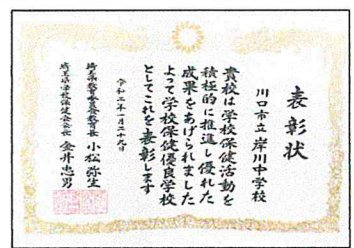 表彰状
川口市立岸川中学校
貴校は学校保健活動を
積極的に推進し優れた
成果をあげられました
よって学校保健優良学校
としてこれを表彰します
令和二年一月二十九日
埼玉県教育委員会教育長 小松弥生
埼玉県学校保健会会長 金井忠男